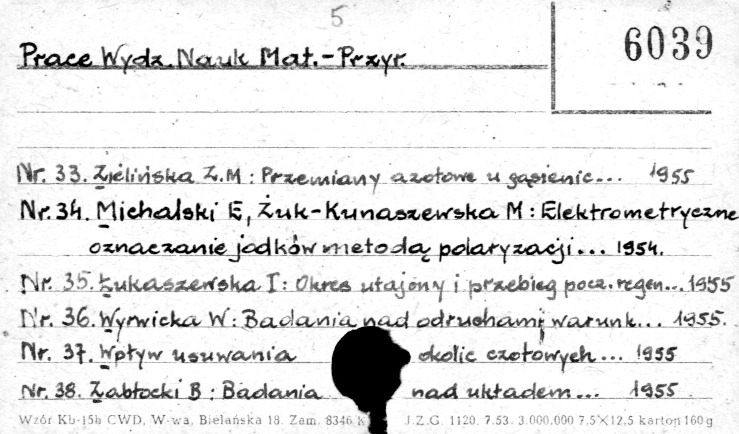 5
6039
Prace Wydz. Nauk Mat.-Przyr.
Nr. 33. Zielińska Z.M: Przemiany azotowe u gąsienic... 1955
Nr. 34. Michalski E, Żuk-Kunaszewska M: Elektrometryczne
oznaczanie jodków metodą polaryzacji... 1954.
Nr. 35. Łukaszewska I: Okres utajony i przebieg pocz. regen... 1955
Nr. 36. Wyrwicka W: Badania nad odruchami warunk... 1955.
Nr. 37. Wpływ usuwania okolic czołowych... 1955
Nr. 38. Zabłocki B: Badania nad układem... 1955
Wzór Kb-15b CWD, W-wa, Bielańska 18. Zam. 8346 J.Z.G. 1120. 7.53. 3.000.000 7,5×12,5 karton 160 g